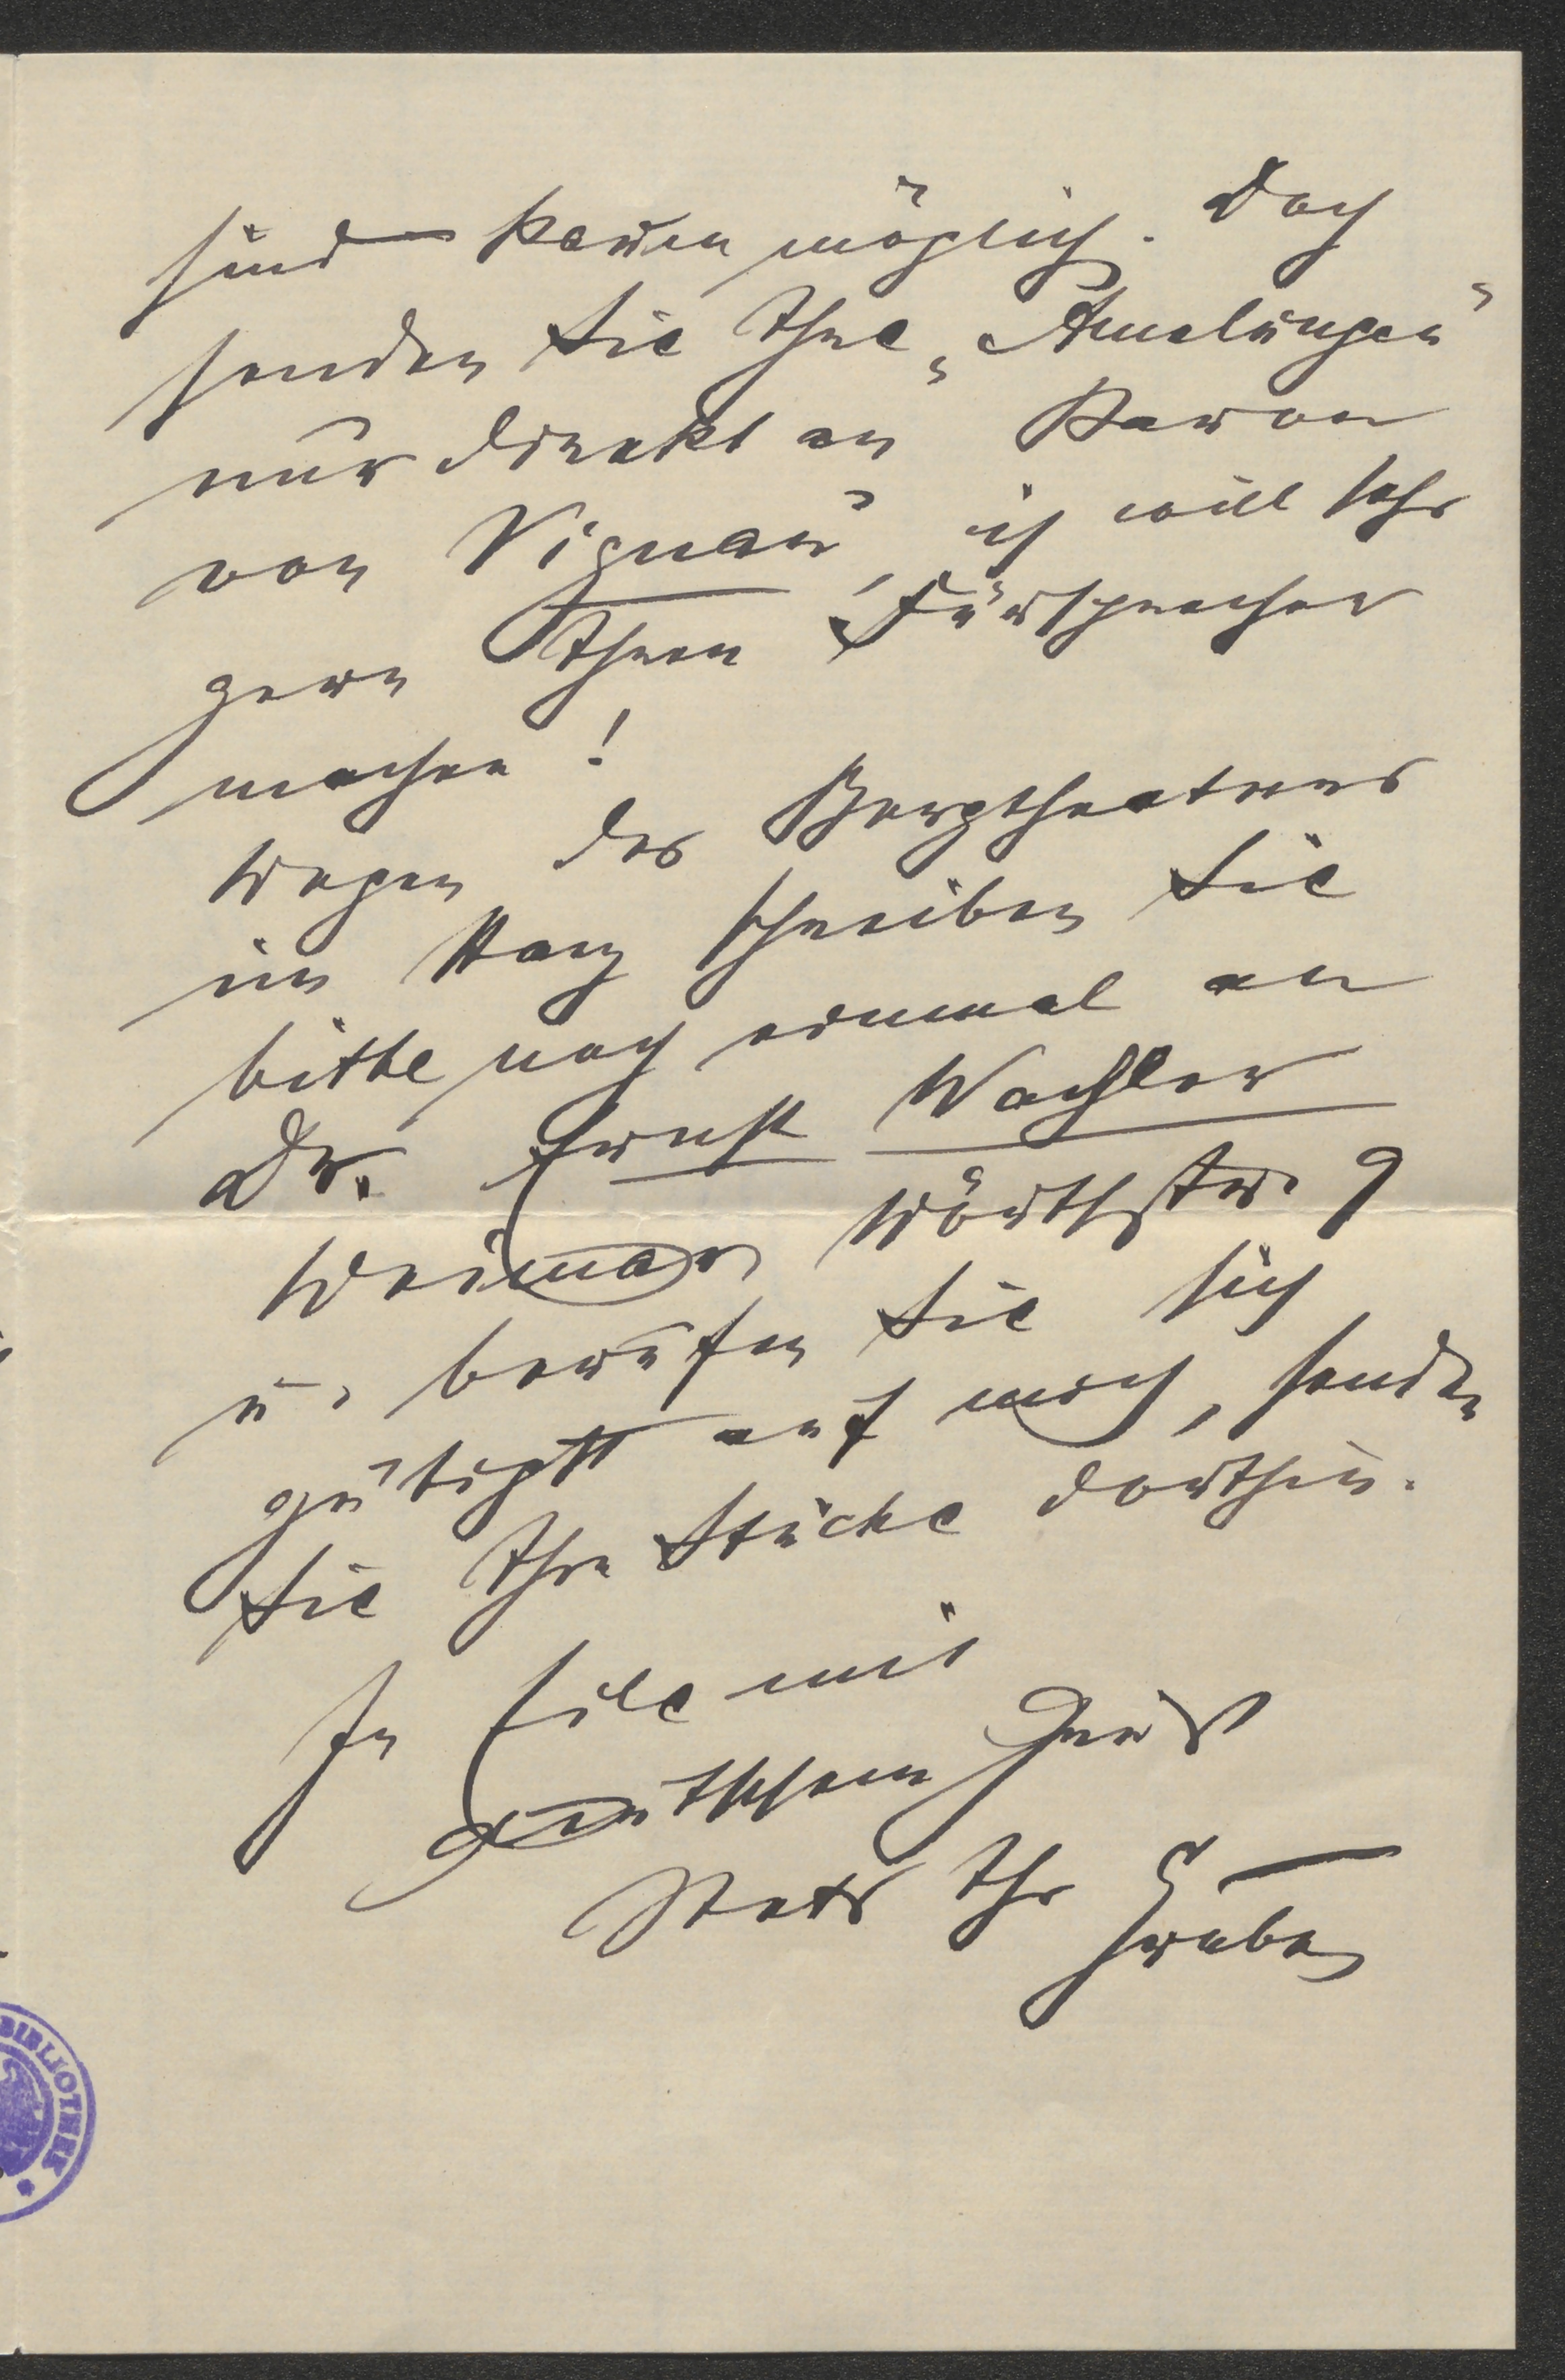 sind kaum möglich. Doch
senden Sie Ihre „Amelungen“
nur direkt an Baron
von Vignau, ich will sehr
gern Ihren Fürsprecher
machen!
Wegen des Bergtheaters
im Harz schreiben Sie
bitte noch einmal an
Dr. Ernst Wachler
Weimar Wörthstr. 9
u. berufen Sie sich
gütigst auf mich, senden
Sie Ihre Stücke dorthin.
In Eile mit
deutschem Gruß
Stets Ihr
BIBLIOTHEK